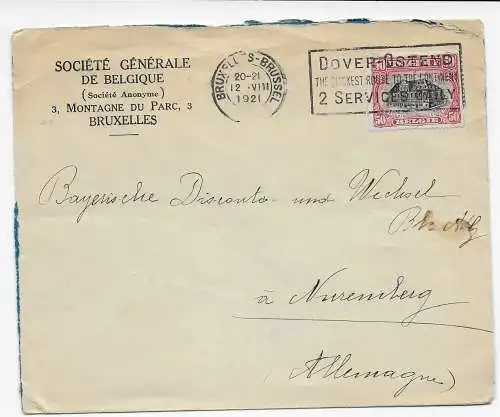 SOCIÉTÉ GÉNÉRALE
DE BELGIQUE
(Société Anonyme)
3, MONTAGNE DU PARC, 3
BRUXELLES
BRUXELLES-BRUSSEL
20-21
12 VIII
1921
DOVER-OSTEND
THE QUICKEST ROUTE TO THE CONTINENT
2 SERVICES DAILY
50 BELGIË 50
Bayerische Disconto- und Wechsel
à Nuremberg
(Allemagne)